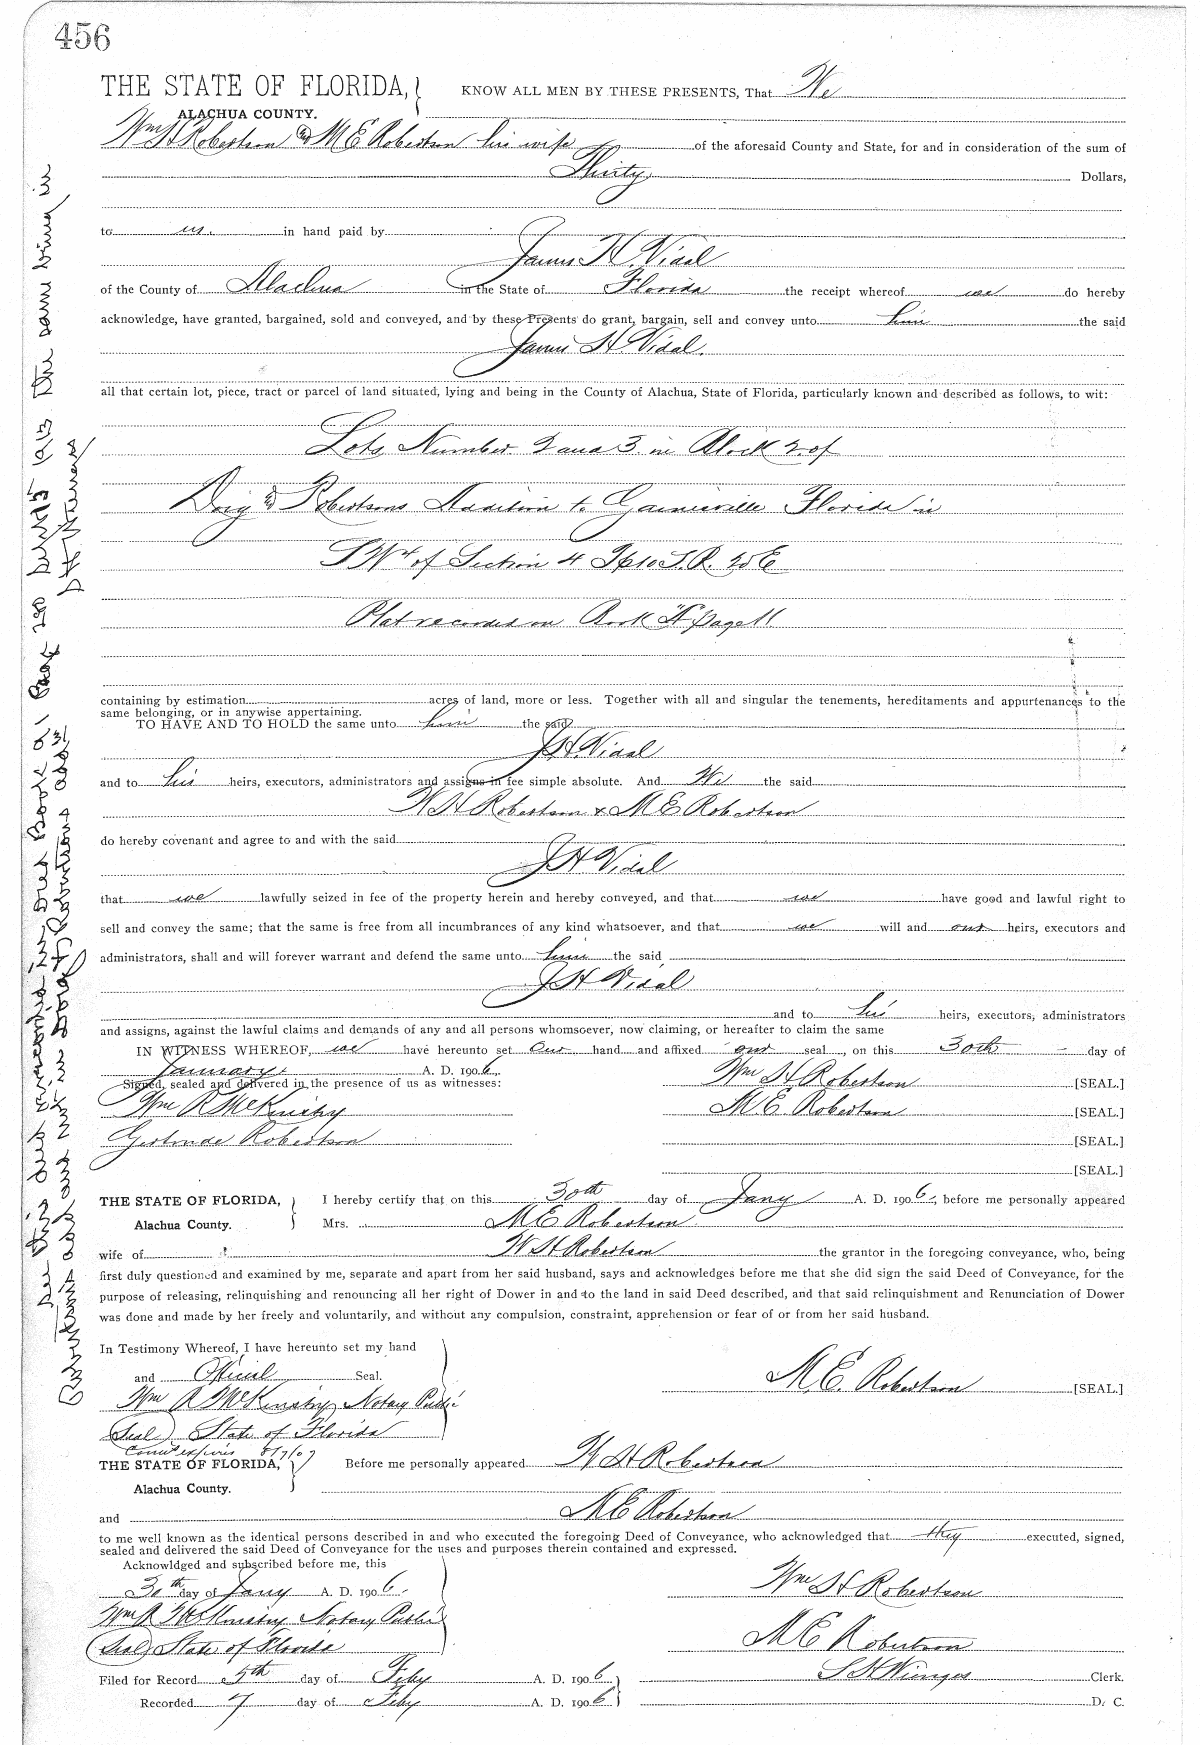 456
THE STATE OF FLORIDA,
ALACHUA COUNTY.
KNOW ALL MEN BY THESE PRESENTS, That We
Wm H Robertson and M E Robertson his wife of the aforesaid County and State, for and in consideration of the sum of
Thirty Dollars,
to us. in hand paid by
James H. Vidal
of the County of Alachua in the State of Florida the receipt whereof we do hereby
acknowledge, have granted, bargained, sold and conveyed, and by these Presents do grant, bargain, sell and convey unto him the said
James H. Vidal.
all that certain lot, piece, tract or parcel of land situated, lying and being in the County of Alachua, State of Florida, particularly known and described as follows, to wit:
Lots Number 2 and 3 in Block 2 of
Doig & Robertsons Addition to Gainesville Florida in
SW 4 of Section 4 Tp 10 S. R. 20 E
Plat recorded in Book "A" page 11
containing by estimation acres of land, more or less. Together with all and singular the tenements, hereditaments and appurtenances to the
same belonging, or in anywise appertaining.
TO HAVE AND TO HOLD the same unto him the said
J H Vidal
and to his heirs, executors, administrators and assigns in fee simple absolute. And We the said
W H Robertson & M E Robertson
do hereby covenant and agree to and with the said
J H Vidal
that we lawfully seized in fee of the property herein and hereby conveyed, and that we have good and lawful right to
sell and convey the same; that the same is free from all incumbrances of any kind whatsoever, and that we will and our heirs, executors and
administrators, shall and will forever warrant and defend the same unto him the said
J H Vidal
and to his heirs, executors, administrators
and assigns, against the lawful claims and demands of any and all persons whomsoever, now claiming, or hereafter to claim the same
IN WITNESS WHEREOF, we have hereunto set our hand and affixed our seal, on this 30th day of
January, A. D. 1906.
Signed, sealed and delivered in the presence of us as witnesses:
Wm H Robertson [SEAL.]
Wm R McKinstry
M E Robertson [SEAL.]
Gertrude Robertson
[SEAL.]
[SEAL.]
THE STATE OF FLORIDA,
Alachua County.
I hereby certify that on this 30th day of Jany A. D. 1906, before me personally appeared
Mrs. M E Robertson
wife of W H Robertson the grantor in the foregoing conveyance, who, being
first duly questioned and examined by me, separate and apart from her said husband, says and acknowledges before me that she did sign the said Deed of Conveyance, for the
purpose of releasing, relinquishing and renouncing all her right of Dower in and to the land in said Deed described, and that said relinquishment and Renunciation of Dower
was done and made by her freely and voluntarily, and without any compulsion, constraint, apprehension or fear of or from her said husband.
In Testimony Whereof, I have hereunto set my hand
and Official Seal.
M. E. Robertson [SEAL.]
Wm R McKinstry Notary Public
(Seal) State of Florida
Comn expires 8/7/07
THE STATE OF FLORIDA,
Alachua County.
Before me personally appeared W H Robertson
and M E Robertson
to me well known as the identical persons described in and who executed the foregoing Deed of Conveyance, who acknowledged that they executed, signed,
sealed and delivered the said Deed of Conveyance for the uses and purposes therein contained and expressed.
Acknowldged and subscribed before me, this
30th day of Jany A. D. 1906.
Wm H Robertson
Wm R McKinstry Notary Public
(Seal) State of Florida
M E Robertson
Filed for Record 5th day of Feby A. D. 1906
S H Wienges Clerk.
Recorded 7 day of Feby A. D. 1906
D. C.
See this deed recorded in Deed Book 91 Page 280 1913 The same being in
Robertsons add and not in Doig & Robertsons add